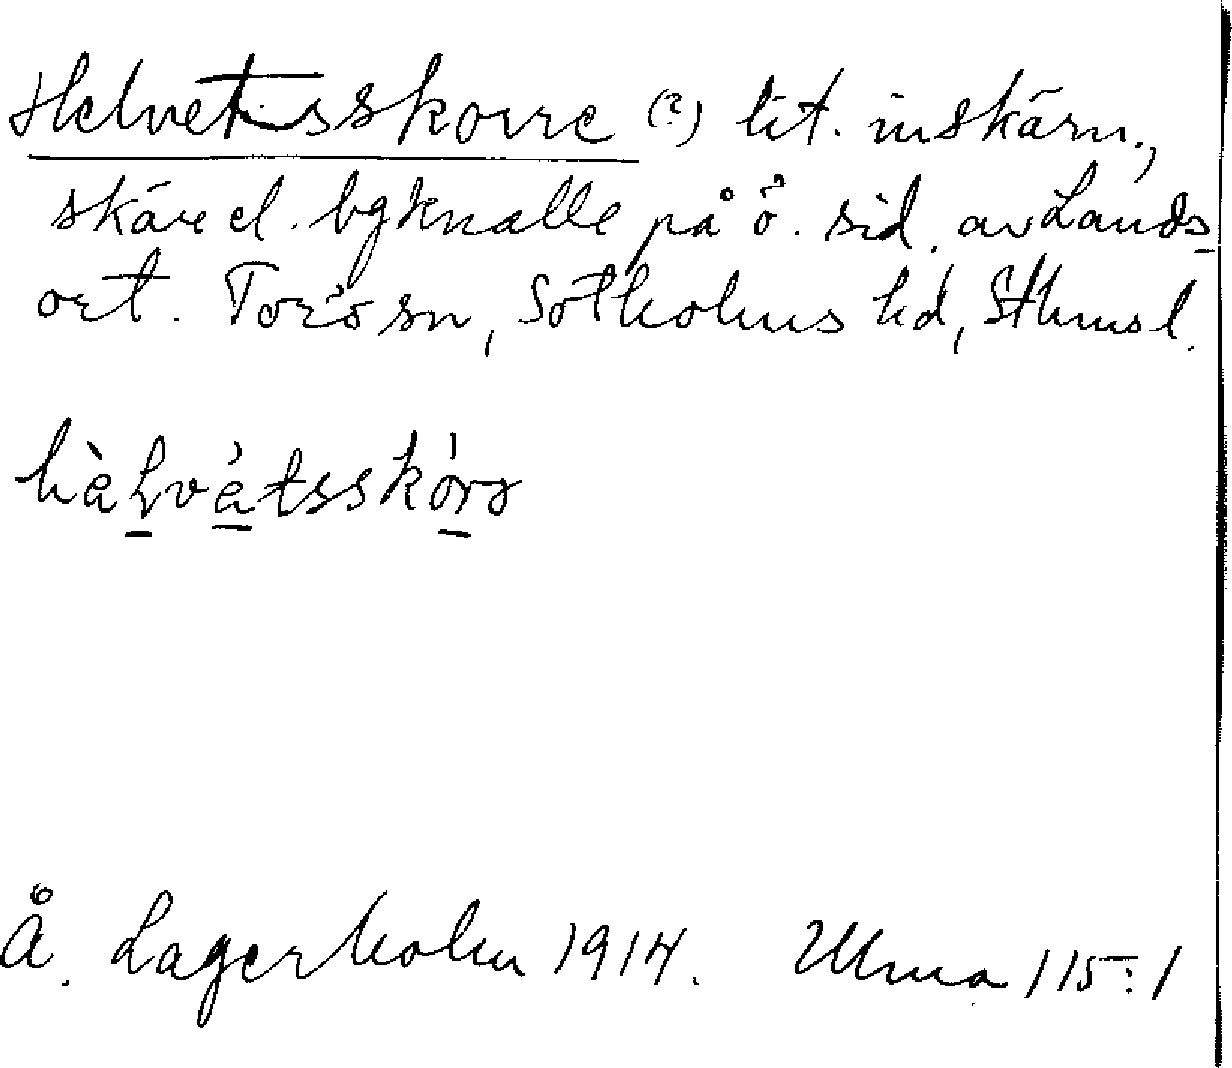 Helvetesskorre (?) lit. inskärn.,
skäre el. bgknalle på ö. sid. av Lands-
ort. Torö sn, Sotholms hd, Sthms l.
hàlvátsskórə
Å. Lagerholm 1914. Ulma 115:1